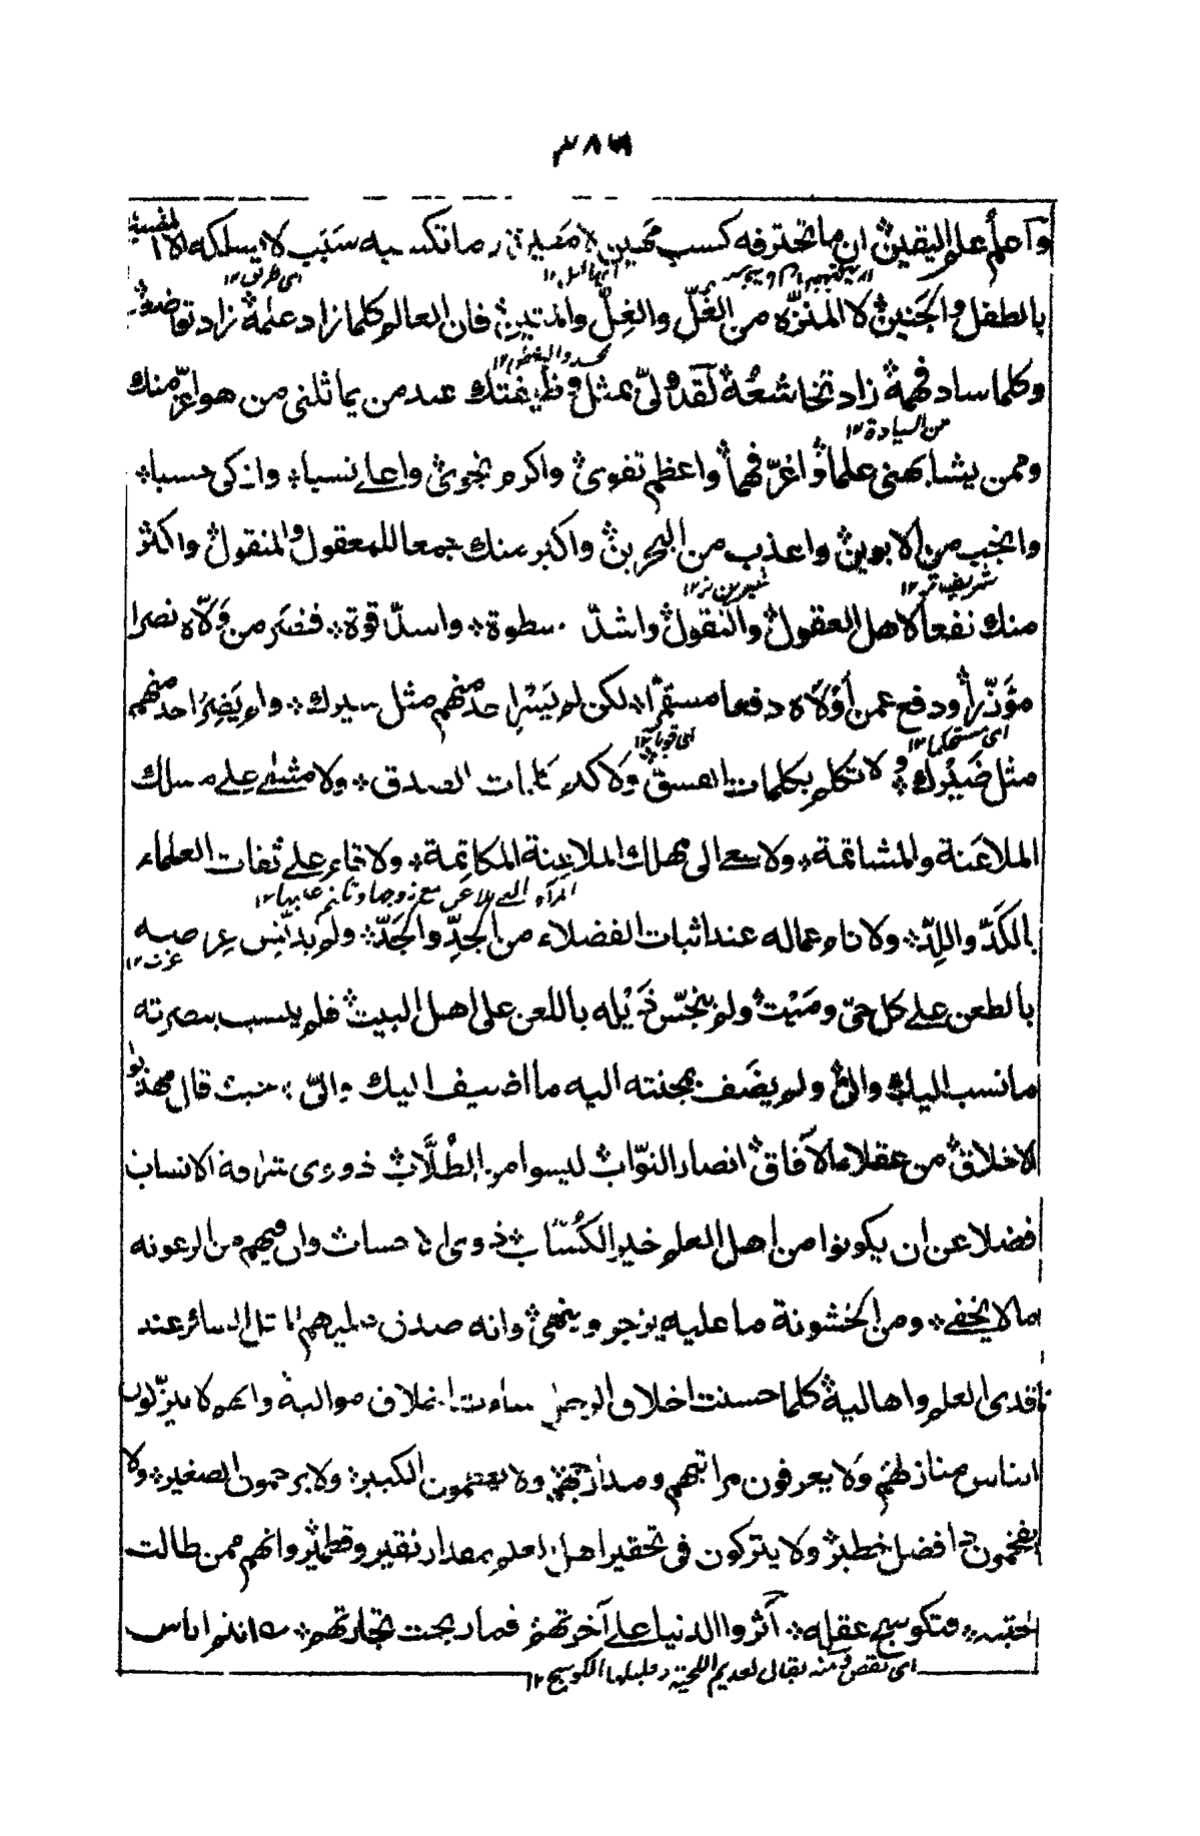 ٣٨٦
واعلم علم اليقين ان ما تحترفه كسب مهين لا معين وما تكسبه سبب لا يسلكه الا المشبه
بالطفل والجنين لا المنزه من الغل والغل والمتين فان العالم كلما زاد علمه زاد تواضعه
وكلما ساد فهمه زاد تخاشعه لقد ولى بمثل وظيفتك عند من يماثلنى من هو اعز منك
من السيادة ١٢
وممن يشابهنى علما واغر فهما واعظم تقوى واكرم نجوى واعلى نسبا واذكى حسبا
وانجب من الابوين واعذب من البحرين واكبر منك جمعا للمعقول والمنقول واكثر
منك نفعا لاهل العقول والنقول واشد سطوة واسد قوة فنصر من ولاه نصرا
مؤزرا ودفع عمن اولاه دفعا مستمرا لكن لم يسر احد منهم مثل سيرك ولم يضر احد منهم
اى قويا ١٢ اى مستحكما ١٢
مثل ضيرك ولا تكلم بكلمات الفسق ولا كلم بكلمات الصدق ولا مشى على مسلك
الملاعنة والمشاتمة ولا سعى الى مهلك الملاعنة المكاتمة ولا على ثقات العلماء
بالكد واللد ولا عند اثبات الفضلاء من الجد والجد ولم يدنس عرضه
عزت ١٢
بالطعن على كل حى وميت ولم ينجس ذيله باللعن على اهل البيت فلم ينسب بنصرته
ما نسب اليك والى ولم يضف بمجنته اليه ما اضيف اليك والى حيث قال مهذبو
الاخلاق من عقلاء الآفاق انصار النواب ليسوا من الطلاب ذوى شرافة الانساب
فضلا عن ان يكونوا من اهل العلم خير الكساب ذوى الاحساب وان فيهم من الرعونه
ما لا يخفى ومن الخشونة ما عليه يزجر وينهى وانه صدق عليهم المثل السائر عند
ناقدى العلم واهاليه كلما حسنت اخلاق الرجل ساءت اخلاق مواليه وانهم لا ينزلون
الناس منازلهم ولا يعرفون مراتبهم ومدارجهم ولا يعظمون الكبير ولا يرحمون الصغير ولا
يفخمون افضل خطير ولا يتركون فى تحقير اهل العلم بمقدار نقير وقطمير وانهم ممن طالت
لحيته فتكوسج عقله آثروا الدنيا على آخرتهم فما ربحت تجارتهم اناس
اى نقص منه يقال لعديم اللحية وقليلها الكوسج ١٢